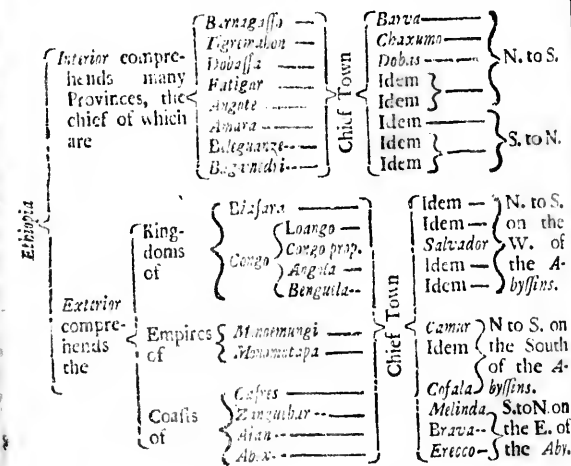 Ethiopia
Interior comprehends many Provinces, the chief of which are
Interior compre-
hends many
Provinces, the
chief of which
are
Barnagasso
Tigremahon
Dobassa
Fatigar
Angote
Amara
Baleguanze
Bagamedri
Chief Town
Barva
Chaxumo
Dobas
Idem
Idem
Idem
Idem
Idem
N. to S.
S. to N.
Exterior
compre-
hends
the
King-
doms
of
Biafara
Congo
Loango
Congo prop.
Angola
Benguela
Empires
of
Monoemungi
Monomotapa
Coasts
of
Cafres
Zanguebar
Aian
Abex
Chief Town
Idem
Idem
Salvador
Idem
Idem
N. to S.
on the
W. of
the A-
byssins.
Camur
Idem
Cofala
N to S. on
the South
of the A-
byssins.
Melinda
Brava
Erecco
S. to N. on
the E. of
the Aby.